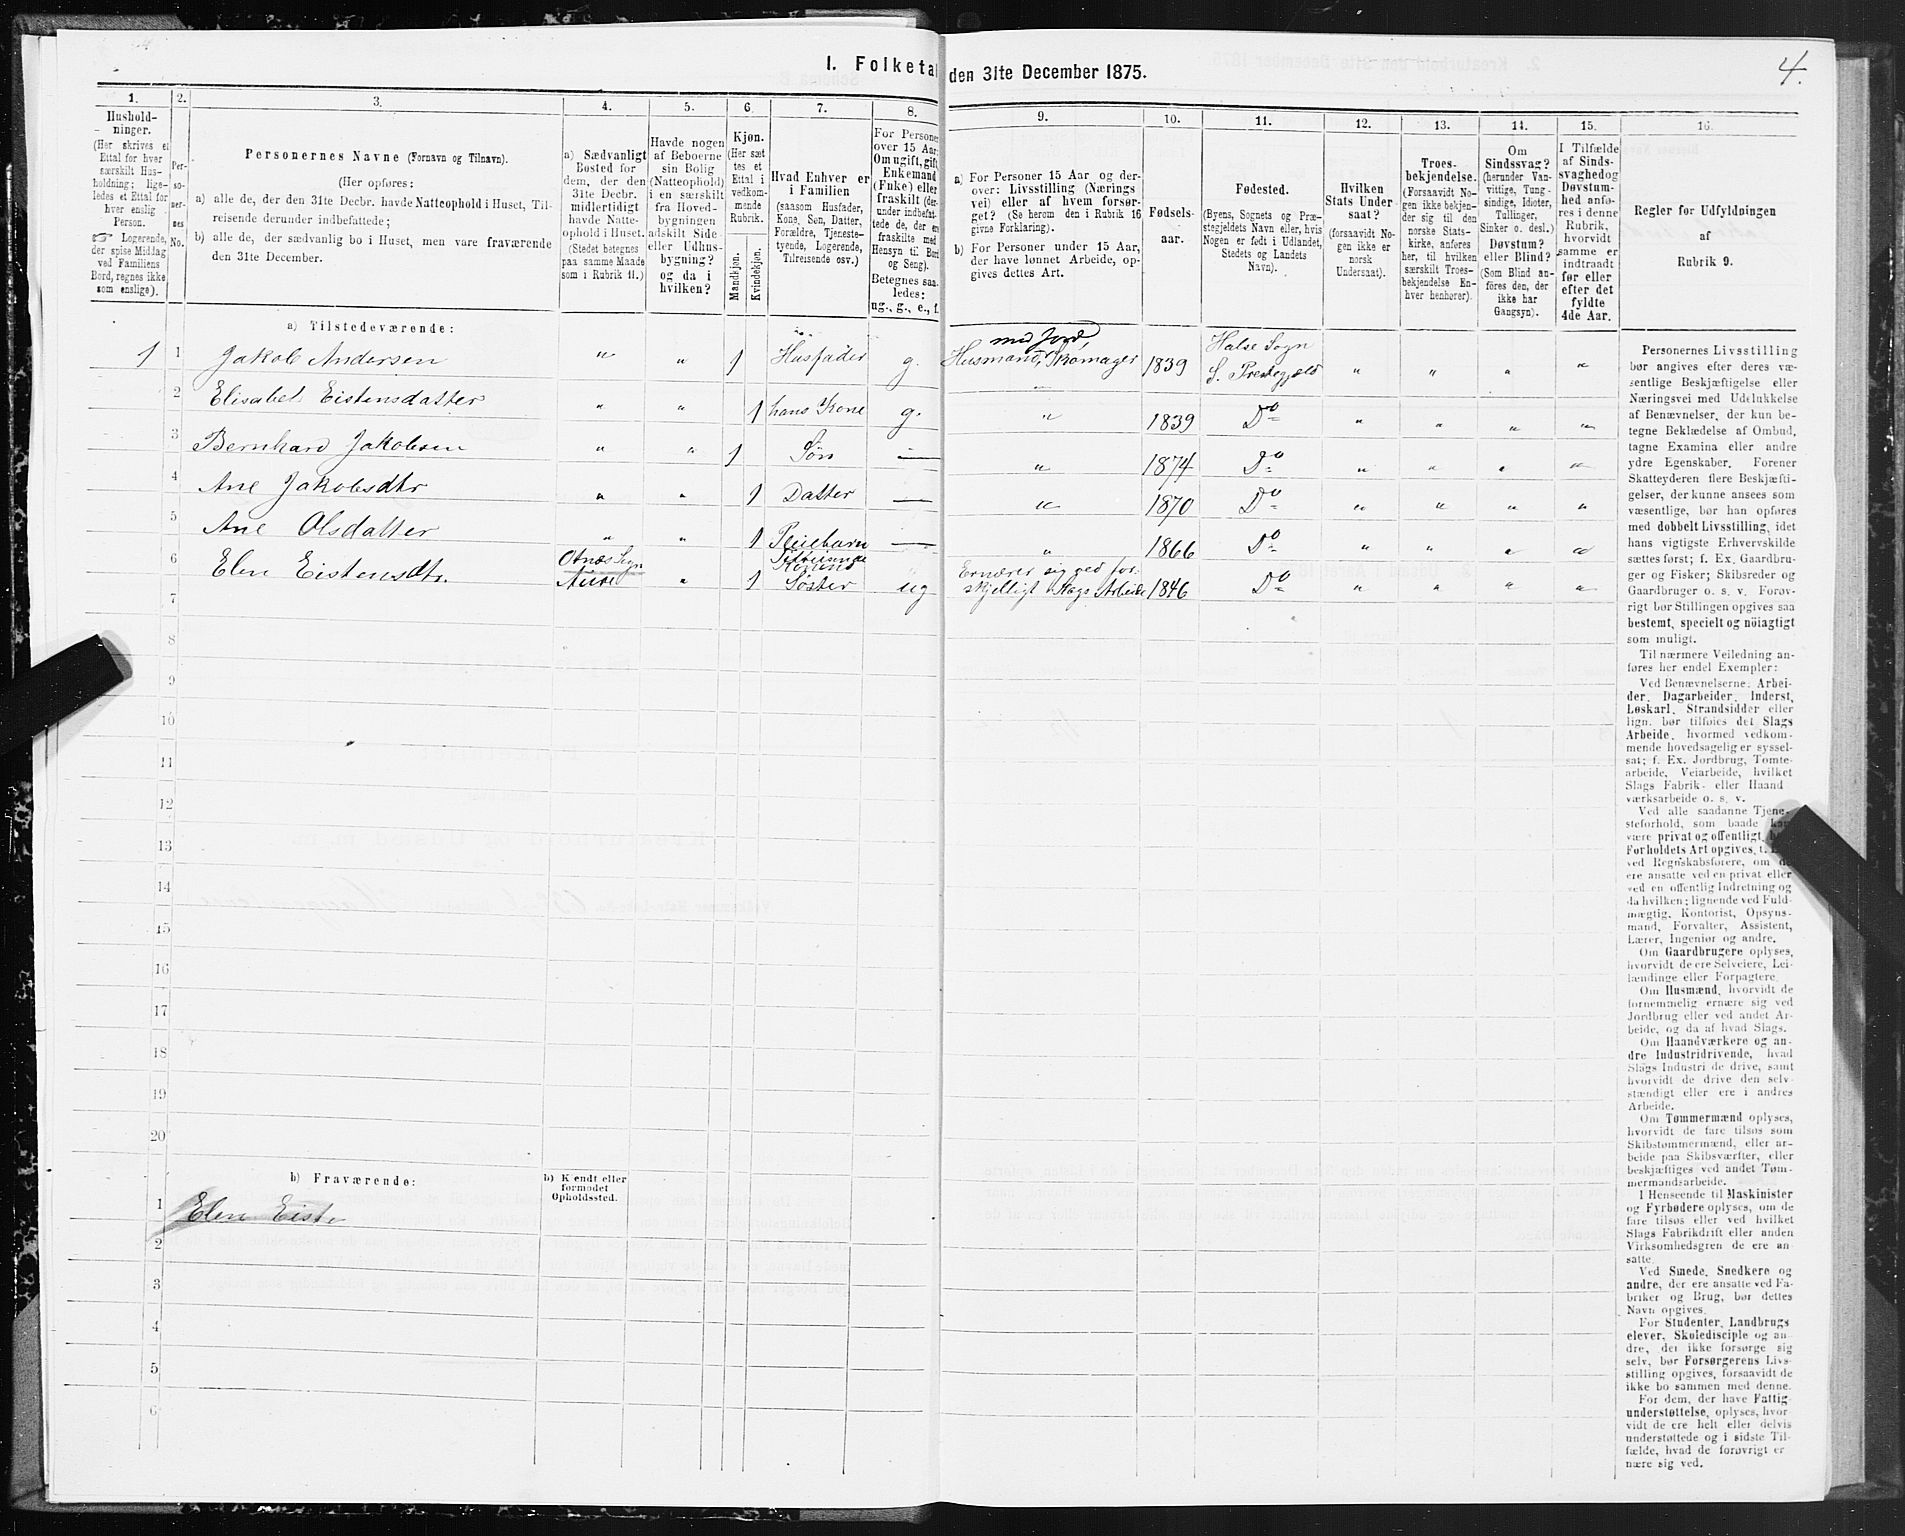 I. Folketal den 31te December 1875.
4.
1.
Hushold-
ninger.
(Her skrives et
Ettal for hver
særskilt Hus-
holdning; lige-
ledes et Ettal for
hver enslig
Person.
☞ Logerende,
der spise Middag
ved Familiens
Bord, regnes ikke
som enslige).
2.
Per-
so-
ner-
nes
No.
3.
Personernes Navne (Fornavn og Tilnavn).
(Her opføres:
a) alle de, der den 31te Decbr. havde Natteophold i Huset, Til-
reisende derunder indbefattede;
b) alle de, der sædvanlig bo i Huset, men vare fraværende
den 31te December.
4.
a) Sædvanligt
Bosted for
dem, der den
31te Decbr.
midlertidigt
havde Natte-
ophold i Huset.
(Stedet betegnes
paa samme Maade
som i Rubrik 11.)
5.
Havde nogen
af Beboerne
sin Bolig
(Natteophold)
i en særskilt
fra Hoved-
bygningen
adskilt Side-
eller Udhus-
bygning?
og da i
hvilken?
6.
Kjøn.
(Her sæt
tes et
Ettal i
vedkom-
mende
Rubrik.
Mandkjøn.
Kvindekjøn.
7.
Hvad Enhver er
i Familien
(saasom Husfader,
Kone, Søn, Datter,
Forældre, Tjeneste-
tyende, Logerende,
Tilreisende osv.)
8.
For Personer
over 15 Aar:
Om ugift, gift,
Enkemand
(Enke) eller
fraskilt (der-
under indbefat-
tede de, der ere
fraskilte med
Hensyn til Bord
og Seng).
Betegnes saa-
ledes:
ug., g., e., f.
9.
a) For Personer 15 Aar og der-
over: Livsstilling (Nærings
vei) eller af hvem forsør-
get? (Se herom den i Rubrik 16
givne Forklaring).
b) For Personer under 15 Aar,
der have lønnet Arbeide, op-
gives dettes Art.
10.
Fødsels-
aar.
11.
Fødested.
(Byens, Sognets og Præ-
stegjeldets Navn eller, hvis
Nogen er født i Udlandet,
Stedets og Landets
Navn).
12.
Hvilken
Stats Under
saat?
(forsaavidt No-
gen ikke er
norsk
Undersaat).
13.
Troes-
bekjendelse.
(Forsaavidt No-
gen ikke bekjen-
der sig til den
norske Stats-
kirke, anføres
her, til hvilken
særskilt Troes-
bekjendelse En-
hver henhører).
14.
Om
Sindssvag?
(herunder Van-
vittige, Tung-
sindige, Idioter,
Tullinger,
Sinker o. desl.)
Døvstum?
eller Blind?
(Som Blind an-
føres den, der
ikke har
Gangsyn).
15.
I Tilfælde
af Sinds-
svaghed og
Døvstum-
hed anfø-
res i denne
Rubrik,
hvorvidt
samme er
indtraadt
før eller
efter det
fyldte
4de Aar.
16.
Regler for Udfyldningen
af
Rubrik 9.
a) Tilstedeværende:
1 1 Jakob Andersen " " 1 Husfader g. Husmand med Jord, Skomager 1839 Halse Sogn S. Prestegjeld " " " "
2 Elisabet Eistensdatter " " 1 hans Kone g. " 1839 Do " " " "
3 Bernhard Jakobsen " " 1 Søn — " 1874 Do " " " "
4 Ane Jakobsdtr " " 1 Datter — " 1870 Do " " " "
5 Ane Olsdatter " " 1 Pleiebarn — " 1866 Do " " " "
6 Elen Eistensdtr. Aure " 1 Søster ug Ernærer sig ved for-
skjelligt Slags Arbeide 1846 Do " " " "
7
8
9
10
11
12
13
14
15
16
17
18
19
20
b) Fraværende:
b) Kjendt eller
formodet
Opholdssted.
1 Elen Eiste
2
3
4
5
6
Personernes Livsstilling
bør angives efter deres væ-
sentlige Beskjæftigelse eller
Næringsvei med Udelukkelse
af Benævnelser, der kun be-
tegne Beklædelse af Ombud,
tagne Examina eller andre
ydre Egenskaber. Forener
Skatteyderen flere Beskjæfti-
gelser, der kunne ansees som
væsentlige, bør han opføres
med dobbelt Livsstilling, idet
hans vigtigste Erhvervskilde
sættes først; f. Ex. Gaardbru-
ger og Fisker; Skibsreder og
Gaardbruger o. s. v. Forøv-
rigt bør Stillingen opgives saa
bestemt, specielt og nöiagtigt
som muligt.
Til nærmere Veiledning an-
føres her endel Exempler:
Ved Benævnelserne: Arbei-
der, Dagarbeider, Inderst,
Løskarl, Strandsidder eller
lign. bør tilføies det Slags
Arbeide, hvormed vedkom-
mende hovedsagelig er syssel-
sat; f. Ex. Jordbrug, Tomte-
arbeide, Veiarbeide, hvilket
Slags Fabrik- eller Haand
værksarbeide o. s. v.
Ved alle saadanne Tjene-
steforhold, som baade kan
være privat og offentligt,
Forholdets Art opgives,
ved Regnskabsførere, om de
ere ansatte ved en privat eller
ved en offentlig Indretning og
da hvilken; lignende ved Fuld-
mægtig, Kontorist, Opsyns-
mand, Forvalter, Assistent,
Lærer, Ingeniør og andre.
Om Gaardbrugere oplyses,
hvorvidt de ere Selveiere, Lei-
lændinge eller Forpagtere.
Om Husmænd, hvorvidt de
fornemmelig ernære sig ved
Jordbrug eller ved andet Ar-
beide, og da af hvad Slags.
Om Haandværkere og an-
dre Industridrivende, hvad
Slags Industri de drive, samt
hvorvidt de drive den selv-
stændigt eller ere i andres
Arbeide.
Om Tømmermænd oplyses,
hvorvidt de fare tilsøs som
Skibstømmermænd, eller ar-
beide paa Skibsværfter, eller
beskjæftiges ved andet Tøm-
mermandsarbeide.
I Henseende til Maskinister
og Fyrbødere oplyses, om de
fare tilsøs eller ved hvilket
Slags Fabrikdrift eller anden
Virksomhedsgren de ere an-
satte.
Ved Smede, Snedkere og
andre, der ere ansatte ved Fa-
briker og Brug, bør dettes
Navn opgives.
For Studenter, Landbrugs
elever, Skoledisciple og an-
dre, der ikke forsørge sig
selv, bør Forsørgerens Livs-
stilling opgives, forsaavidt de
ikke bo sammen med denne.
For dem, der have Fattig-
understøttelse, oplyses, hvor-
vidt de ere helt eller delvis
understøttede og i sidste Til-
fælde, hvad de forøvrigt er
nære sig ved.